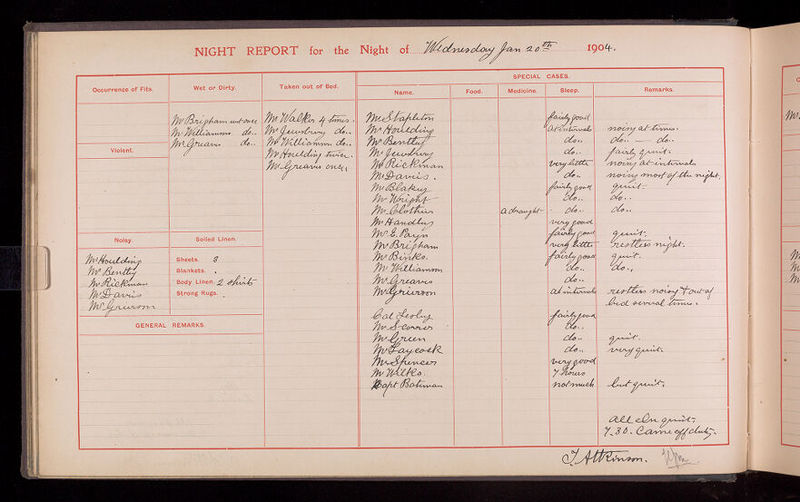 NIGHT REPORT for the Night of Wednesday Jan 20th 1904.
SPECIAL CASES.
Occurrence of Fits.
Wet or Dirty.
Taken out of Bed.
Name.
Food.
Medicine.
Sleep.
Remarks.
Mr Brigham wet once
Mr Williamson do..
Mr Greaves do..
Violent.
Mr Walker 4 times.
Mr Jewsbury do..
Mr Williamson do..
Mr Houlding twice.
Mr Greaves once
Noisy.
Soiled Linen.
Mr Houlding
Mr Bentley
Mr Rickman
Mr Davis
Mr Grierson
Sheets. 3
Blankets.
Body Linen. 2 shirts
Strong Rugs.
GENERAL REMARKS
Mr Stapleton fairly good
Mr Houlding at intervals noisy at times.
Mr Bentley do.. do.. do..
Mr Jewsbury do.. fairly quiet.
Mr Rickman very little noisy at intervals
Mr Davis. do.. noisy most of the night.
Mr Blakey fairly good quiet.
Mr Wright do.. do..
Mr Clothier a draught do.. do..
Mr Handley very good
Mr E. Payn fairly good quiet.
Mr Brigham very little restless night.
Mr Binks. fairly good quiet.
Mr Williamson do.. do..
Mr Greaves do..
Mr Grierson at intervals restless noisy & out of
bed several times.
Col fairly good
Mr do..
Mr Green do.. quiet.
Mr Laycock do.. very quiet.
Mr Spencer very good
Mr Wilks. 7 hours
Capt Bateman not much but quiet.
all else quiet.
7-30. Came off duty.
J. Atkinson.